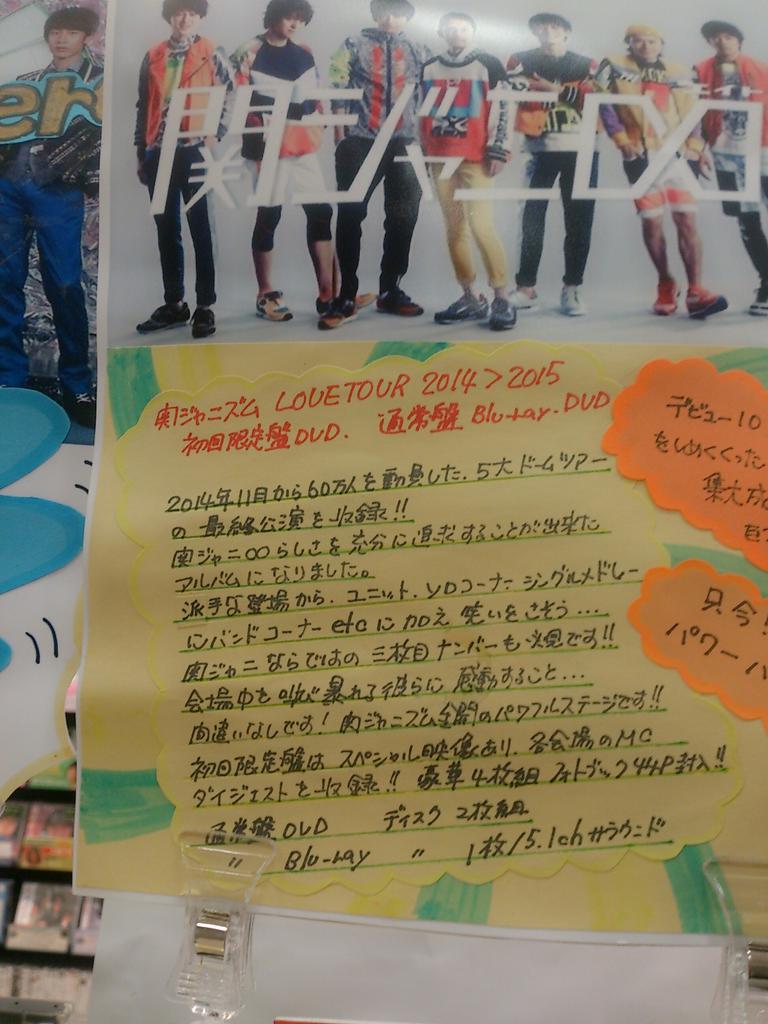 er
関ジャニ∞
関ジャニズム LOVETOUR 2014>2015
初回限定盤DVD. 通常盤 Blu-ray.DVD
2014年11月から60万人を動員した. 5大ドームツアー
の 最終公演を収録!!
関ジャニ∞らしさを充分に追求することが出来た
アルバムになりました。
派手な登場から、ユニット、ソロコーナー シングルメドレー
にバンドコーナー etc に加え 笑いをさそう...
関ジャニならではの 三枚目ナンバーも必見です!!
会場中を叫び暴れる彼らに 感動すること...
間違いなしです! 関ジャニズム全開のパワフルステージです!!
初回限定盤は スペシャル映像あり、各会場のMC
ダイジェストを収録!! 豪華4枚組 フォトブック44P封入!!
通常盤 DVD ディスク 2枚組
〃 Blu-ray 〃 1枚/5.1chサラウンド
デビュー10
をしめくくった
集大成
只今!
パワー